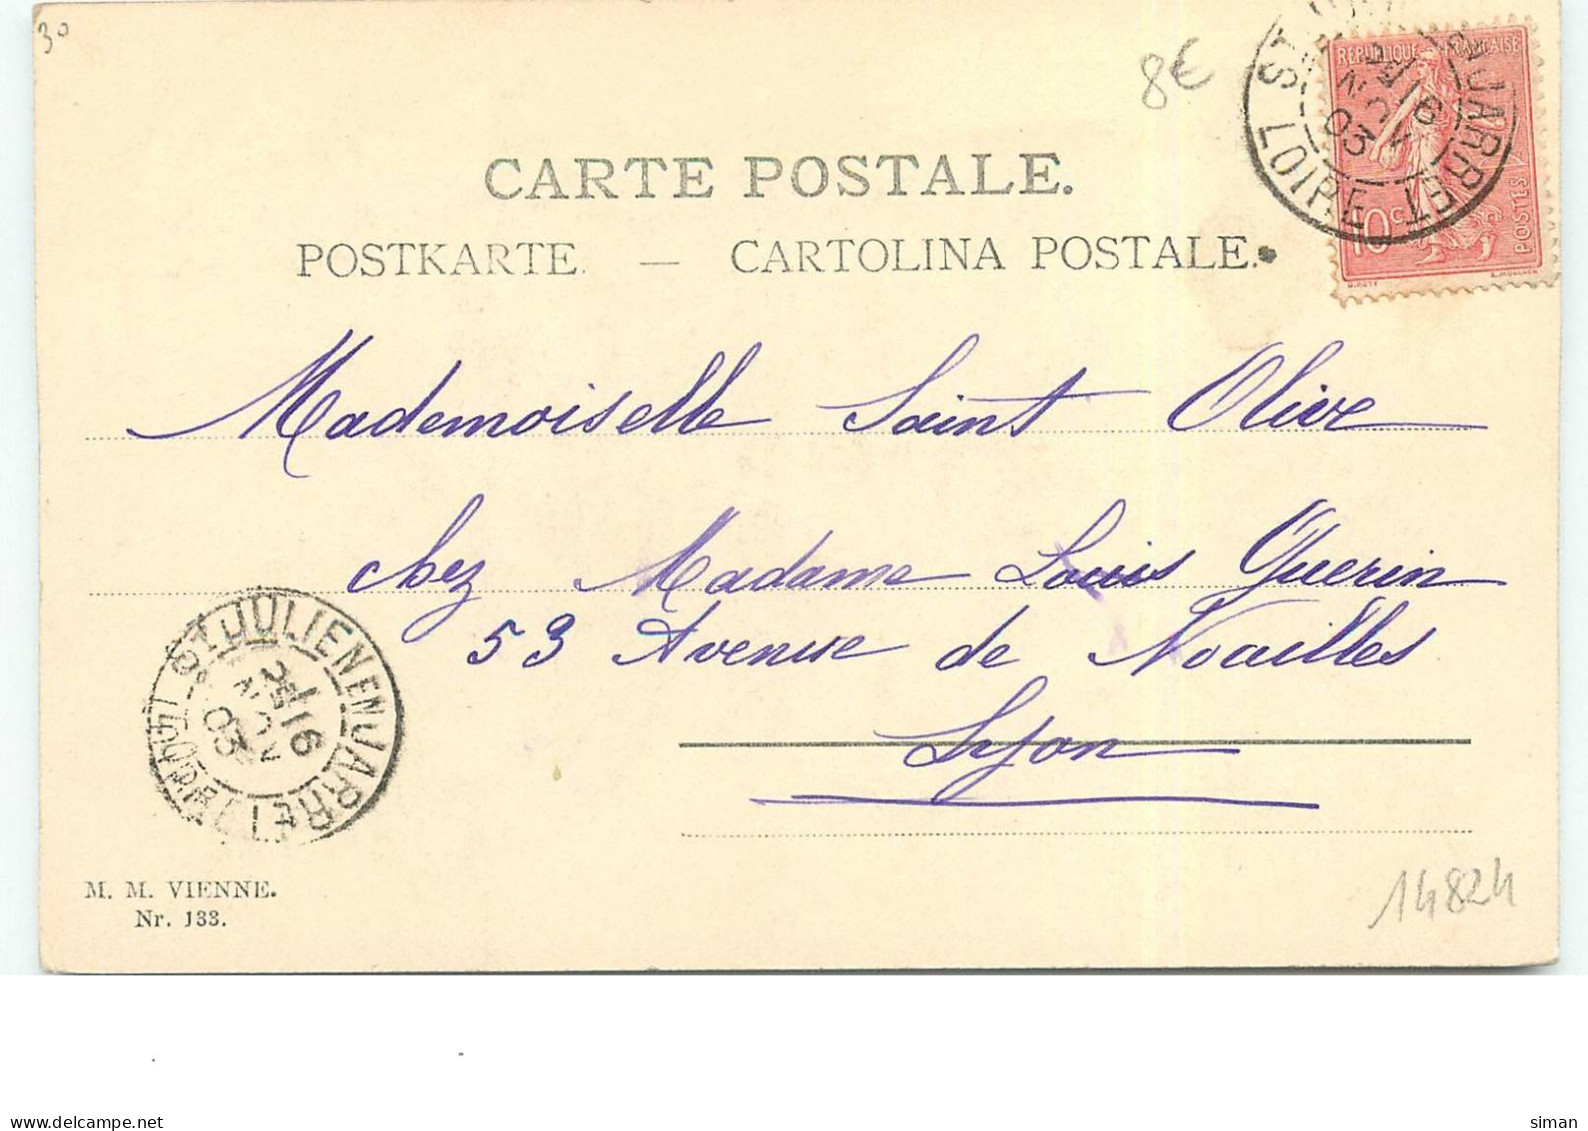 30
8€
CARTE POSTALE.
POSTKARTE. — CARTOLINA POSTALE.
REPUBLIQUE FRANÇAISE
10c
POSTES
O. ROTY
L. MOUCHON
ST JARRET LOIRE
16 NOV 03
Mademoiselle Saint Olive
chez Madame Louis Guerin
53 Avenue de Noailles
Lyon
ST JULIEN EN JARRET LOIRE
2E 16 NOV 03
M. M. VIENNE.
Nr. 133.
14824
www.delcampe.net
siman